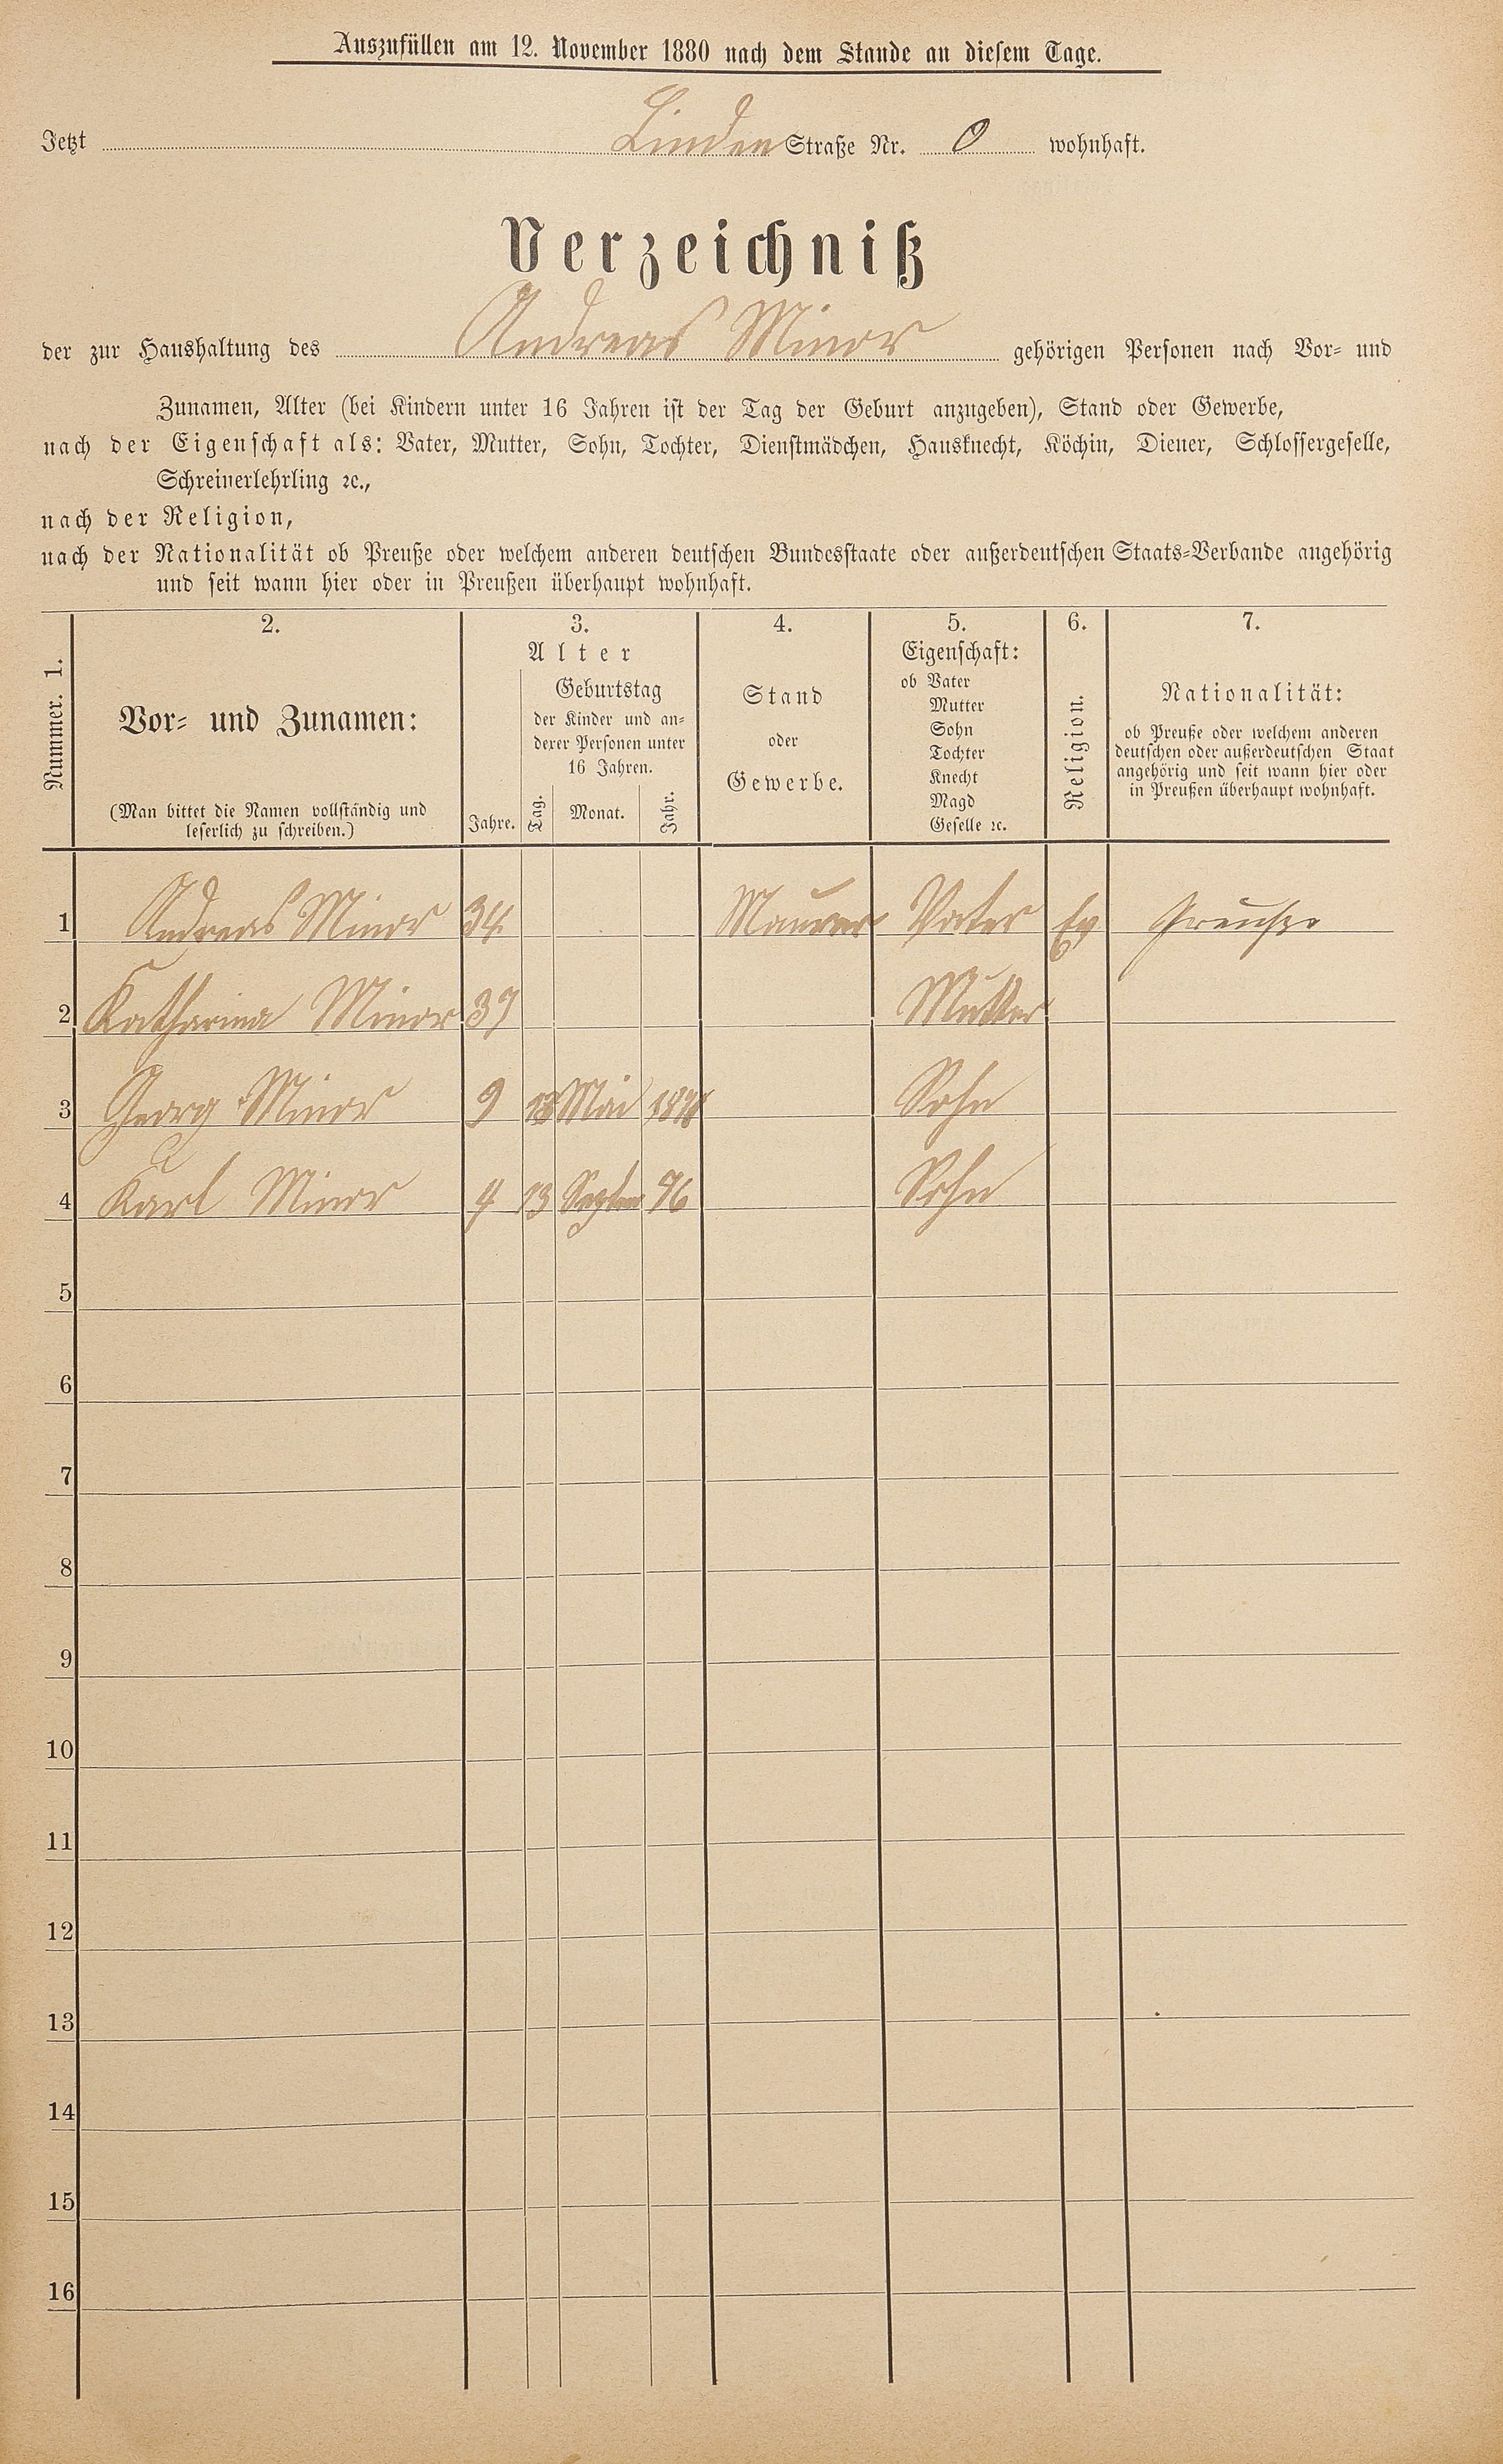 Auszufüllen am 12. November 1880 nach dem Stande an diesem Tage.
Jetzt Linden Straße Nr. 0 wohnhaft.
Verzeichniß
der zur Haushaltung des Andreas Minor gehörigen Personen nach Vor- und
Zunamen, Alter (bei Kindern unter 16 Jahren ist der Tag der Geburt anzugeben), Stand oder Gewerbe,
nach der Eigenschaft als: Vater, Mutter, Sohn, Tochter, Dienstmädchen, Hausknecht, Köchin, Diener, Schlossergeselle,
Schreinerlehrling ꝛc.,
nach der Religion,
nach der Nationalität ob Preuße oder welchem anderen deutschen Bundesstaate oder außerdeutschen Staats-Verbande angehörig
und seit wann hier oder in Preußen überhaupt wohnhaft.
Nummer. 1.
2.
Vor- und Zunamen:
(Man bittet die Namen vollständig und
leserlich zu schreiben.)
3.
Alter
Jahre.
Geburtstag
der Kinder und an-
derer Personen unter
16 Jahren.
Tag. Monat. Jahr.
4.
Stand
oder
Gewerbe.
5.
Eigenschaft:
ob Vater
Mutter
Sohn
Tochter
Knecht
Magd
Geselle ꝛc.
6.
Religion.
7.
Nationalität:
ob Preuße oder welchem anderen
deutschen oder außerdeutschen Staat
angehörig und seit wann hier oder
in Preußen überhaupt wohnhaft.
1 Andreas Minor 34 Maurer Vater Ev Preuße
2 Katharina Minor 37 Mutter
3 Georg Minor 9 Mai Sohn
4 Karl Minor 4 13 Septem 76 Sohn
5
6
7
8
9
10
11
12
13
14
15
16